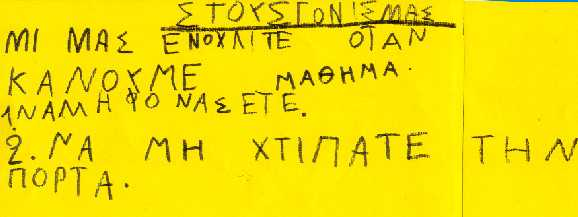 ΣΤΟΥΣΓΟΝΙΣΜΑΣ
ΜΙ ΜΑΣ ΕΝΟΧΛΙΤΕ ΟΤΑΝ
ΚΑΝΟΥΜΕ ΜΑΘΗΜΑ.
1ΝΑΜΗΦΟΝΑΣΕΤΕ.
2. ΝΑ ΜΗ ΧΤΙΠΑΤΕ ΤΗΝ
ΠΟΡΤΑ.